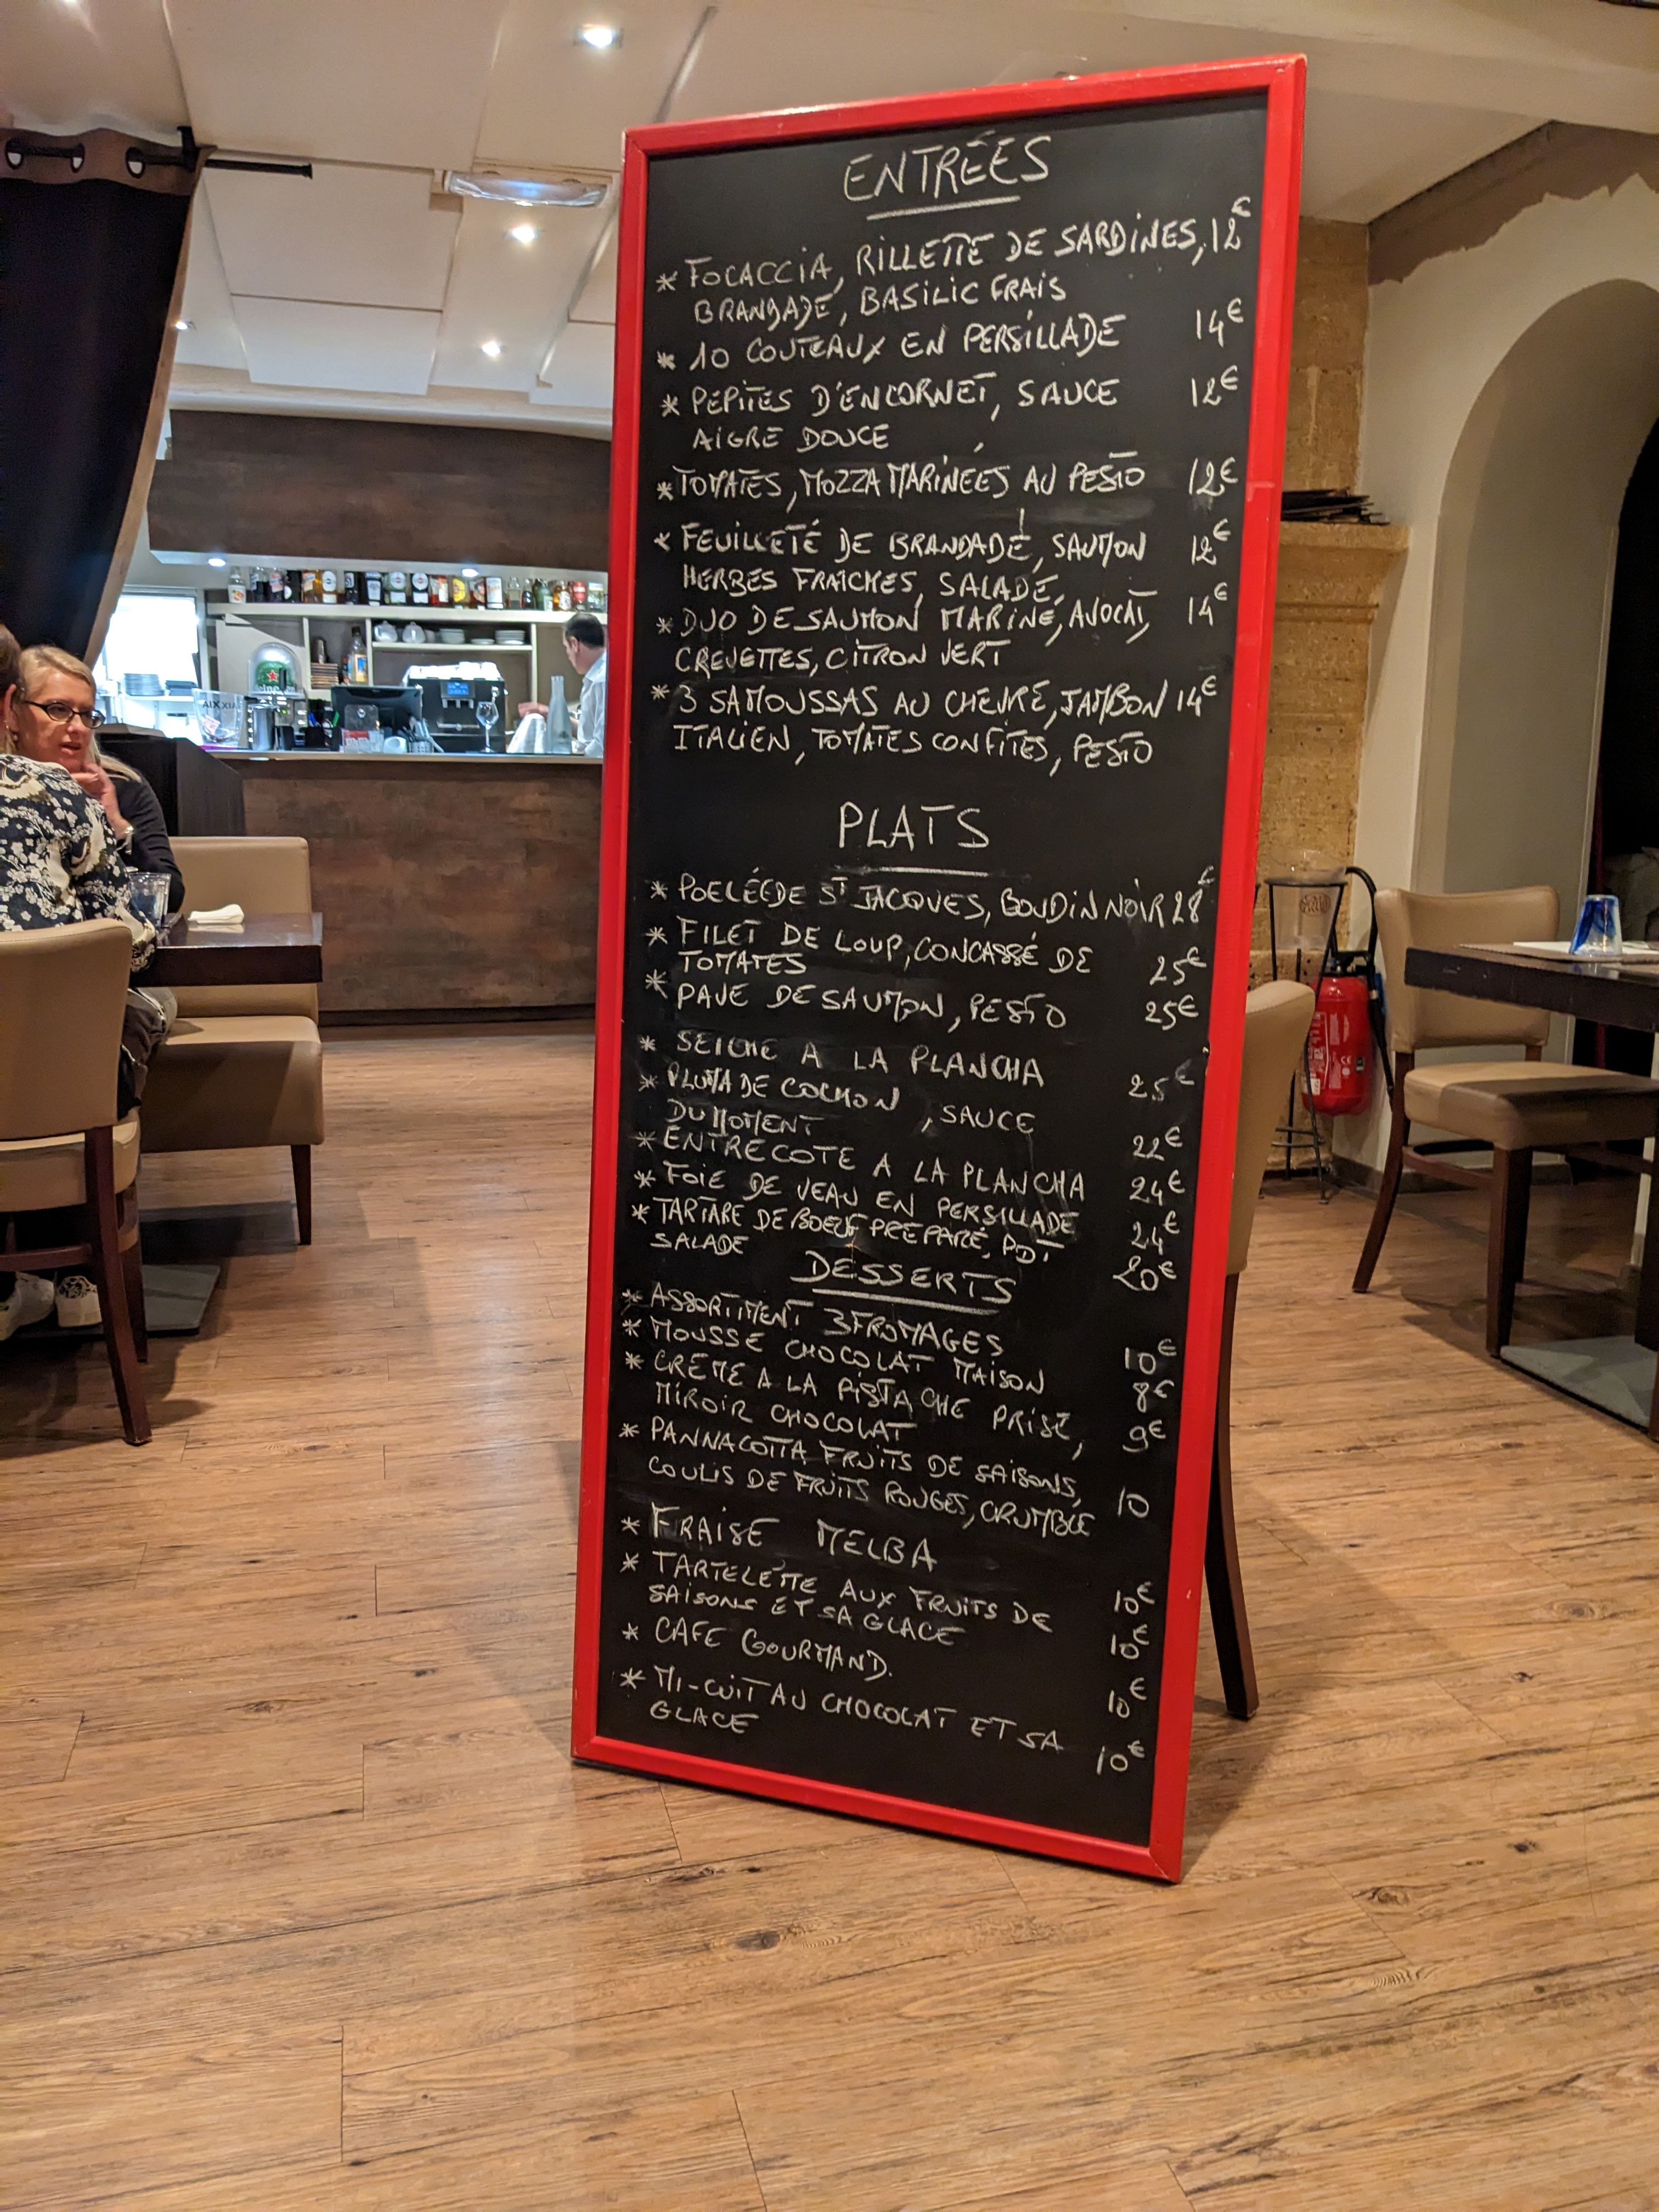 ENTRÉES
* FOCACCIA, RILLETTE DE SARDINES, 12€
BRANDADE, BASILIC FRAIS
* 10 COUTEAUX EN PERSILLADE 14€
* PEPITES D'ENCORNET, SAUCE 12€
AIGRE DOUCE
* TOMATES, MOZZA MARINÉES AU PESTO 12€
* FEUILLETÉ DE BRANDADE, SAUMON 12€
HERBES FRAICHES, SALADE,
* DUO DE SAUMON MARINÉ, AVOCAT, 14€
CREVETTES, CITRON VERT
* 3 SAMOUSSAS AU CHEVRE, JAMBON 14€
ITALIEN, TOMATES CONFITES, PESTO
PLATS
* POELÉEDE ST JACQUES, BOUDIN NOIR 28€
* FILET DE LOUP, CONCASSÉ DE
TOMATES 25€
* PAVE DE SAUMON, PESTO 25€
* SEICHE A LA PLANCHA 25€
* PLUMA DE COCHON, SAUCE
DU MOMENT 22€
* ENTRECOTE A LA PLANCHA 24€
* FOIE DE VEAU EN PERSILLADE 24€
* TARTARE DE BOEUF PREPARÉ, PDT 20€
SALADE
DESSERTS
* ASSORTIMENT 3 FROMAGES 10€
* MOUSSE CHOCOLAT MAISON 8€
* CREME A LA PISTACHE PRISE, 9€
MIROIR CHOCOLAT
* PANNACOTTA FRUITS DE SAISONS,
COULIS DE FRUITS ROUGES, CRUMBLE 10
* FRAISE MELBA 10€
* TARTELETTE AUX FRUITS DE
SAISONS ET SA GLACE 10€
* CAFE GOURMAND. 10€
* MI-CUIT AU CHOCOLAT ET SA
GLACE 10€